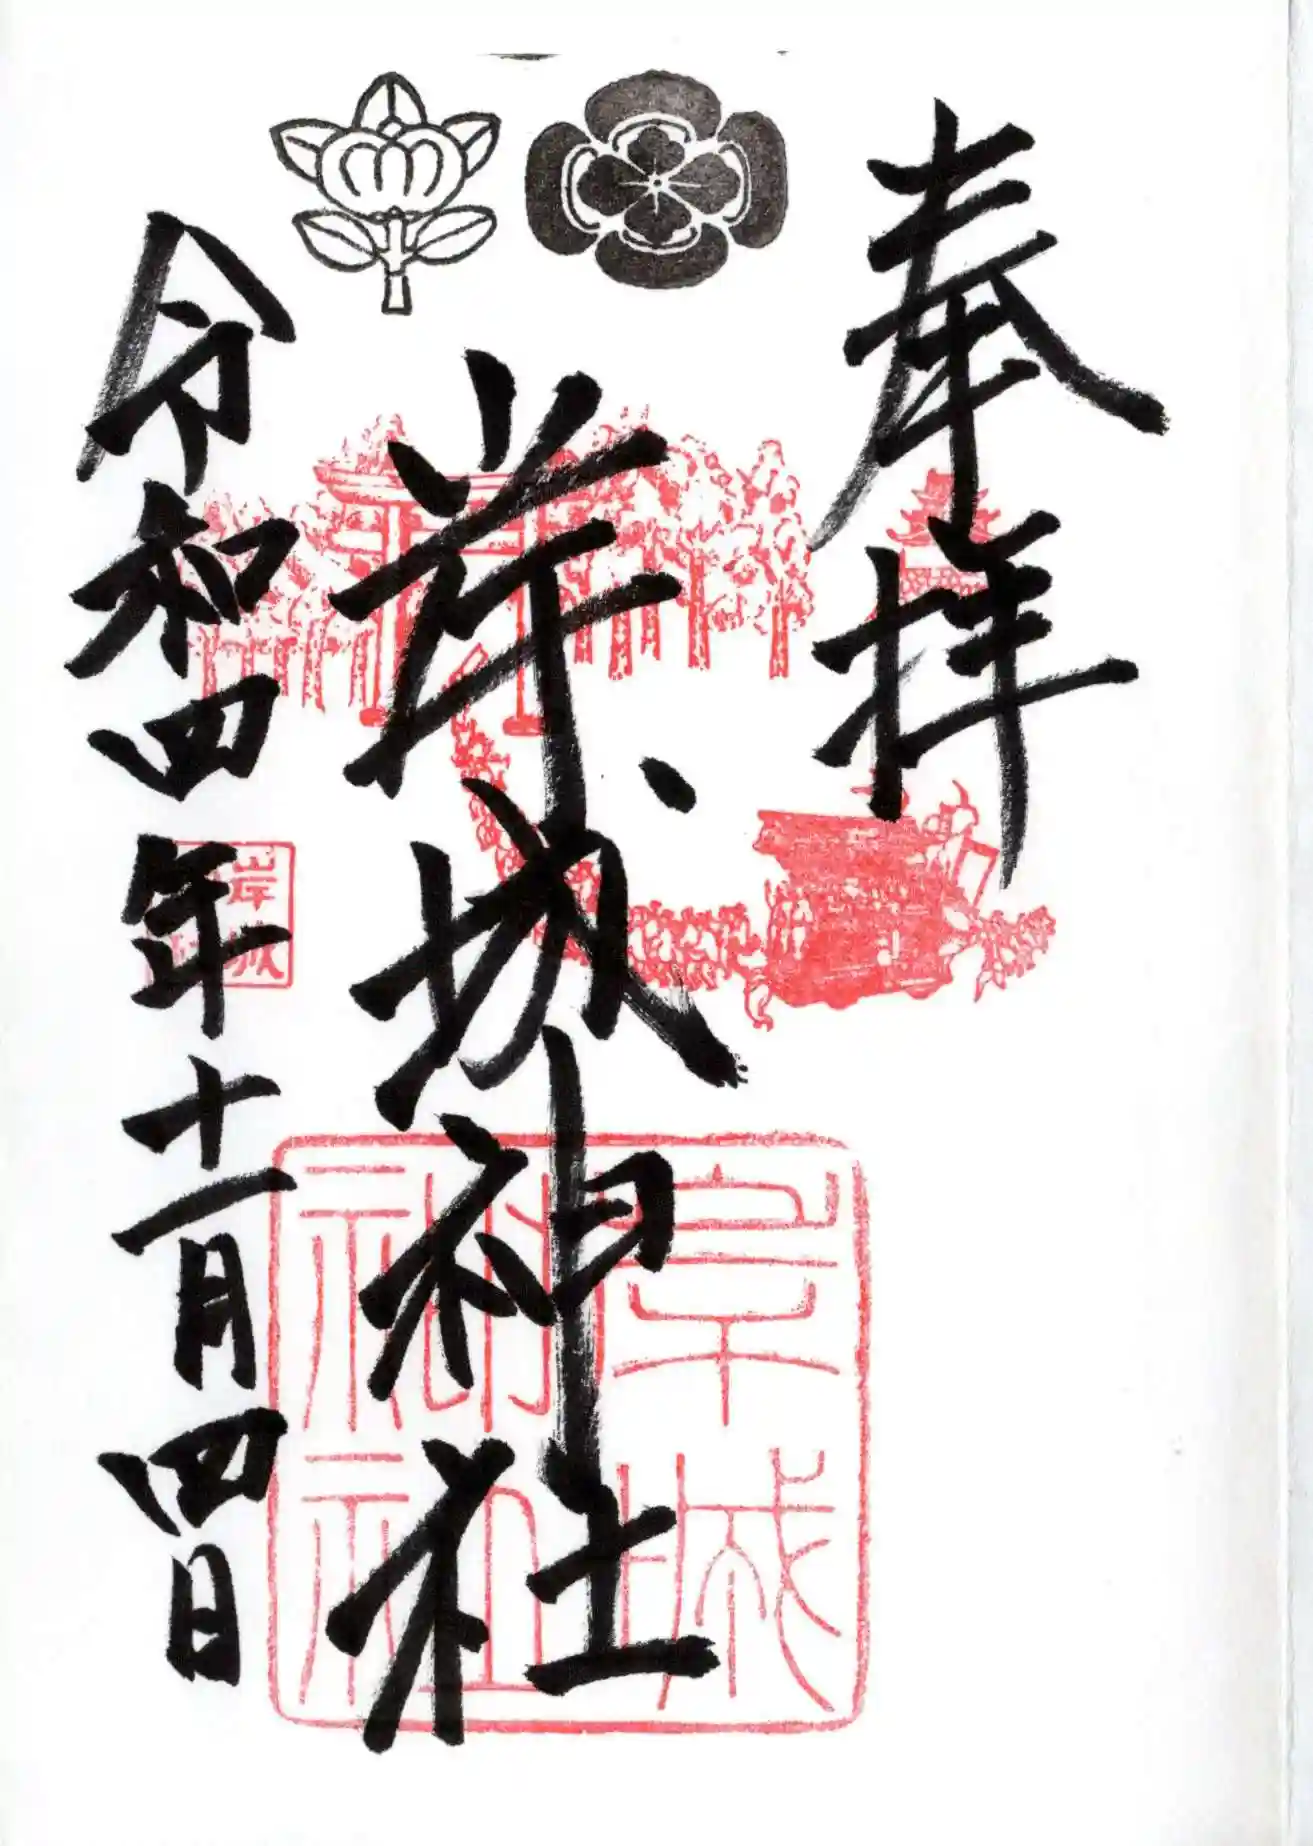 奉拝
岸城神社
令和四年十一月四日
岸城
岸城
神社